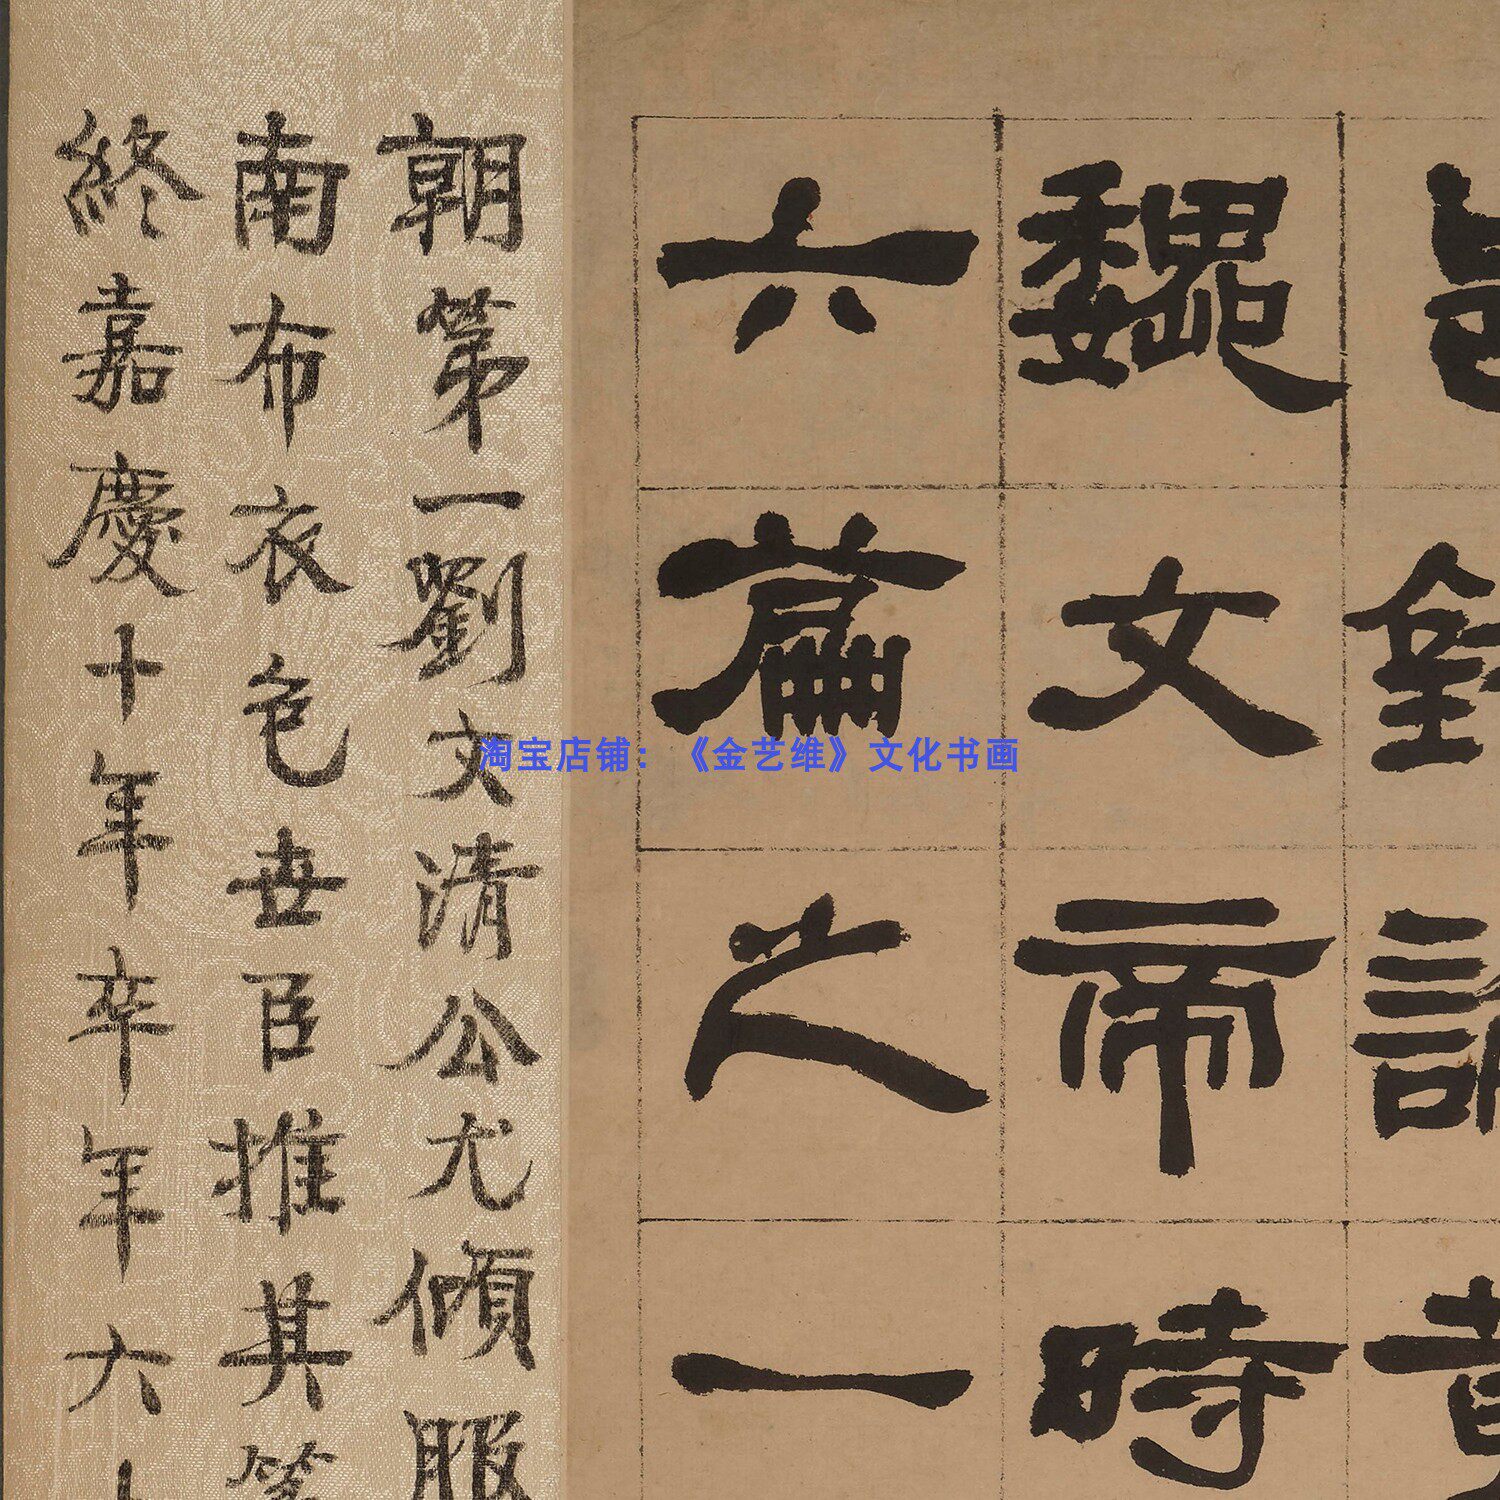 魏文帝時
六篇之一
朝第一劉文清公尤傾服
南布衣色世臣推其
終嘉慶十年卒年六十
淘宝店铺：《金艺维》文化书画